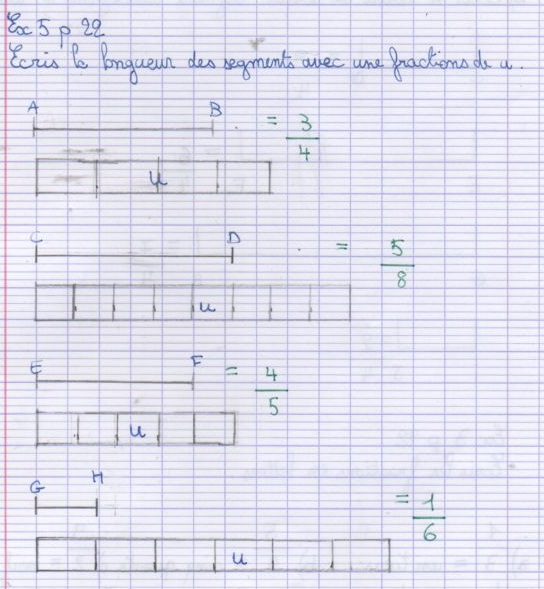 Ex 5 p 22
Ecris la longueur des segments avec une fractions de u.
A B = 3/4
u
C D = 5/8
u
E F = 4/5
u
G H = 1/6
u